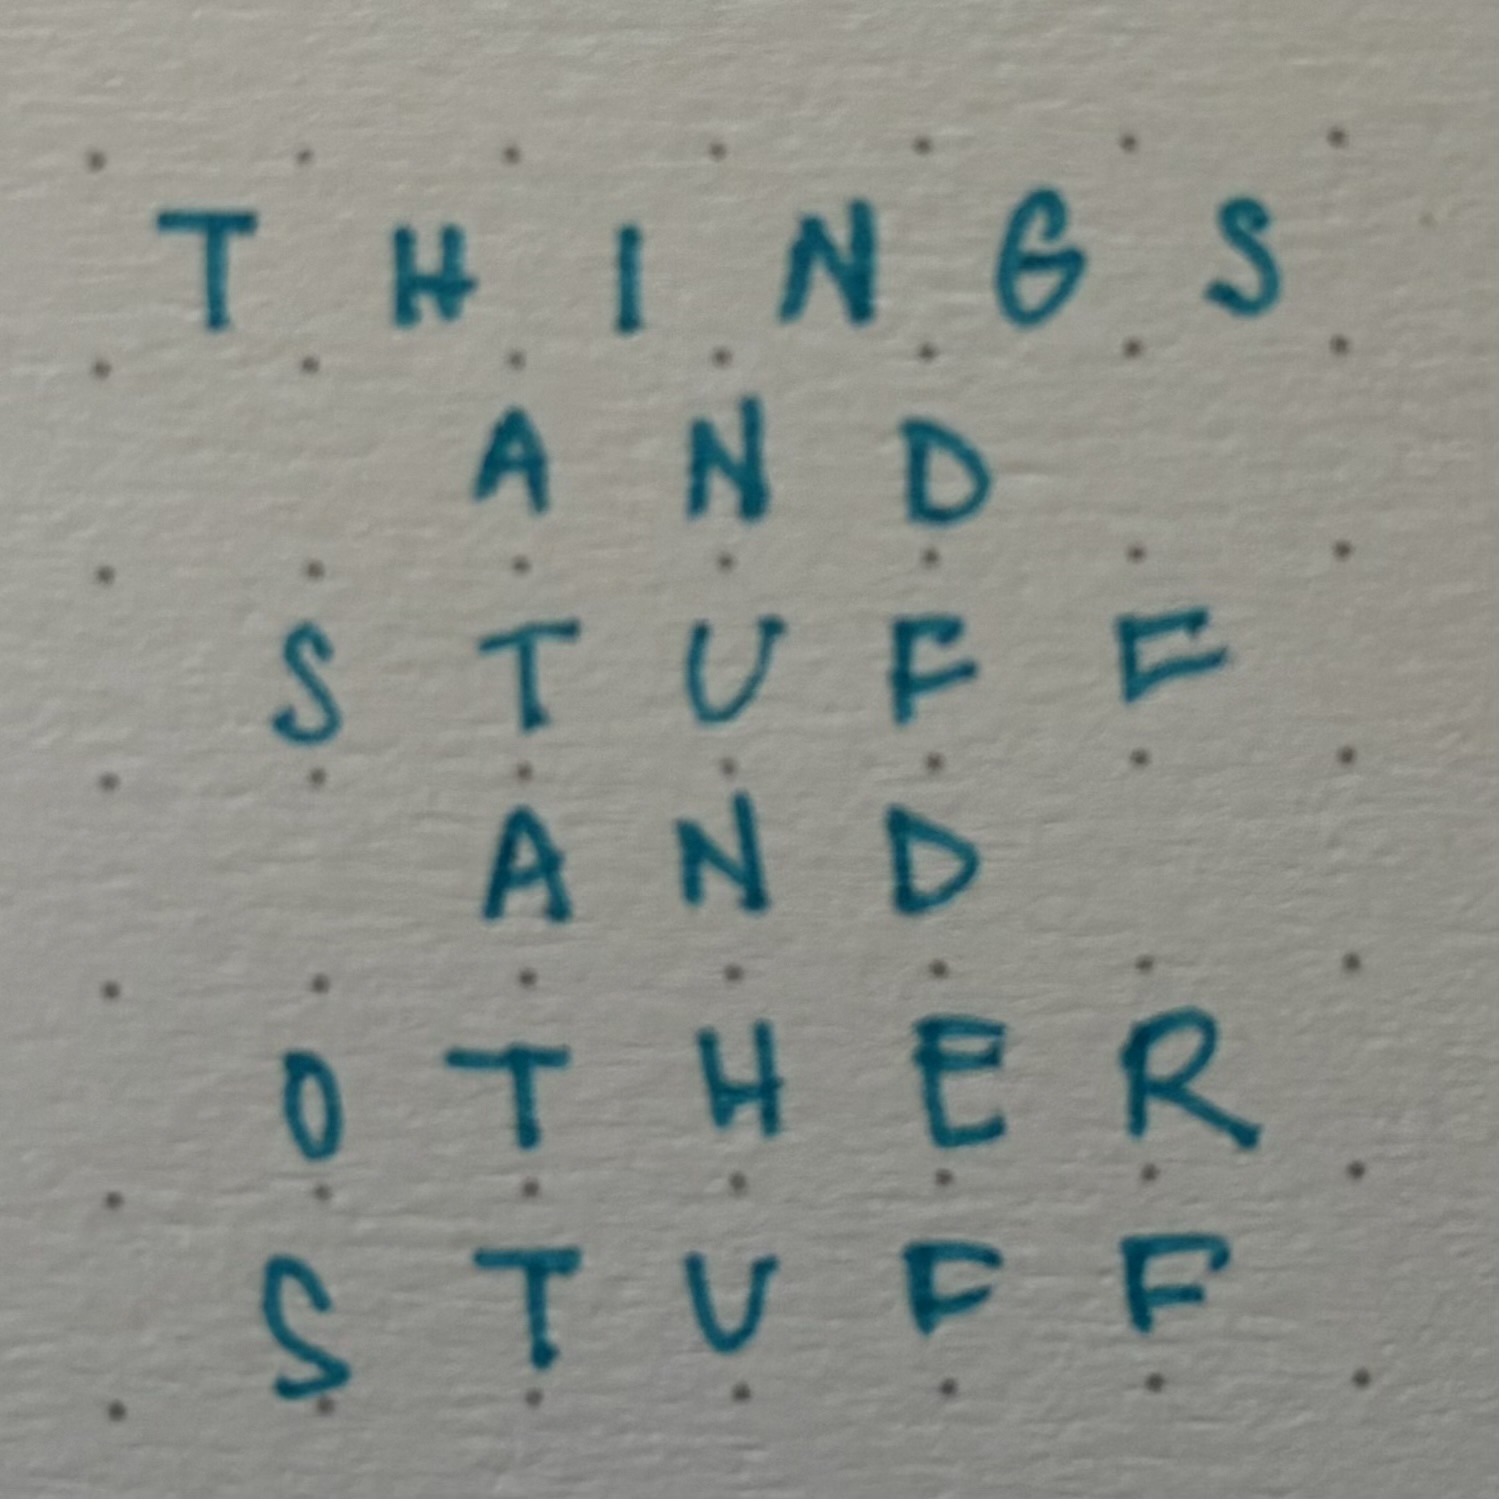 THINGS
AND
STUFF
AND
OTHER
STUFF